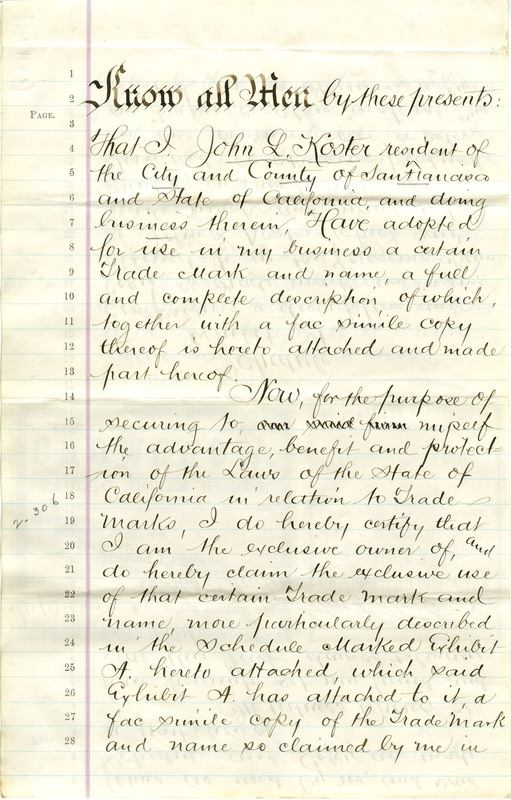 Know all Men by these presents:
PAGE.
That I, John L. Koster resident of
the City and County of San Francisco
and State of California, and doing
business therein, Have adopted
for use in my business a certain
Trade Mark and name, a full
and complete description of which,
together with a fac simile copy
thereof is hereto attached and made
part hereof.
Now, for the purpose of
securing to, our said firm myself
the advantage, benefit and protect-
ion of the Laws of the State of
California in relation to Trade
Marks, I do hereby certify that
I am the exclusive owner of, and
do hereby claim the exclusive use
of that certain Trade Mark and
name, more particularly described
in the Schedule Marked Exhibit
A. hereto attached, which said
Exhibit A. has attached to it, a
fac simile copy of the Trade Mark
and name so claimed by me in
1
2
3
4
5
6
7
8
9
10
11
12
13
14
15
16
17
18
19
20
21
22
23
24
25
26
27
28